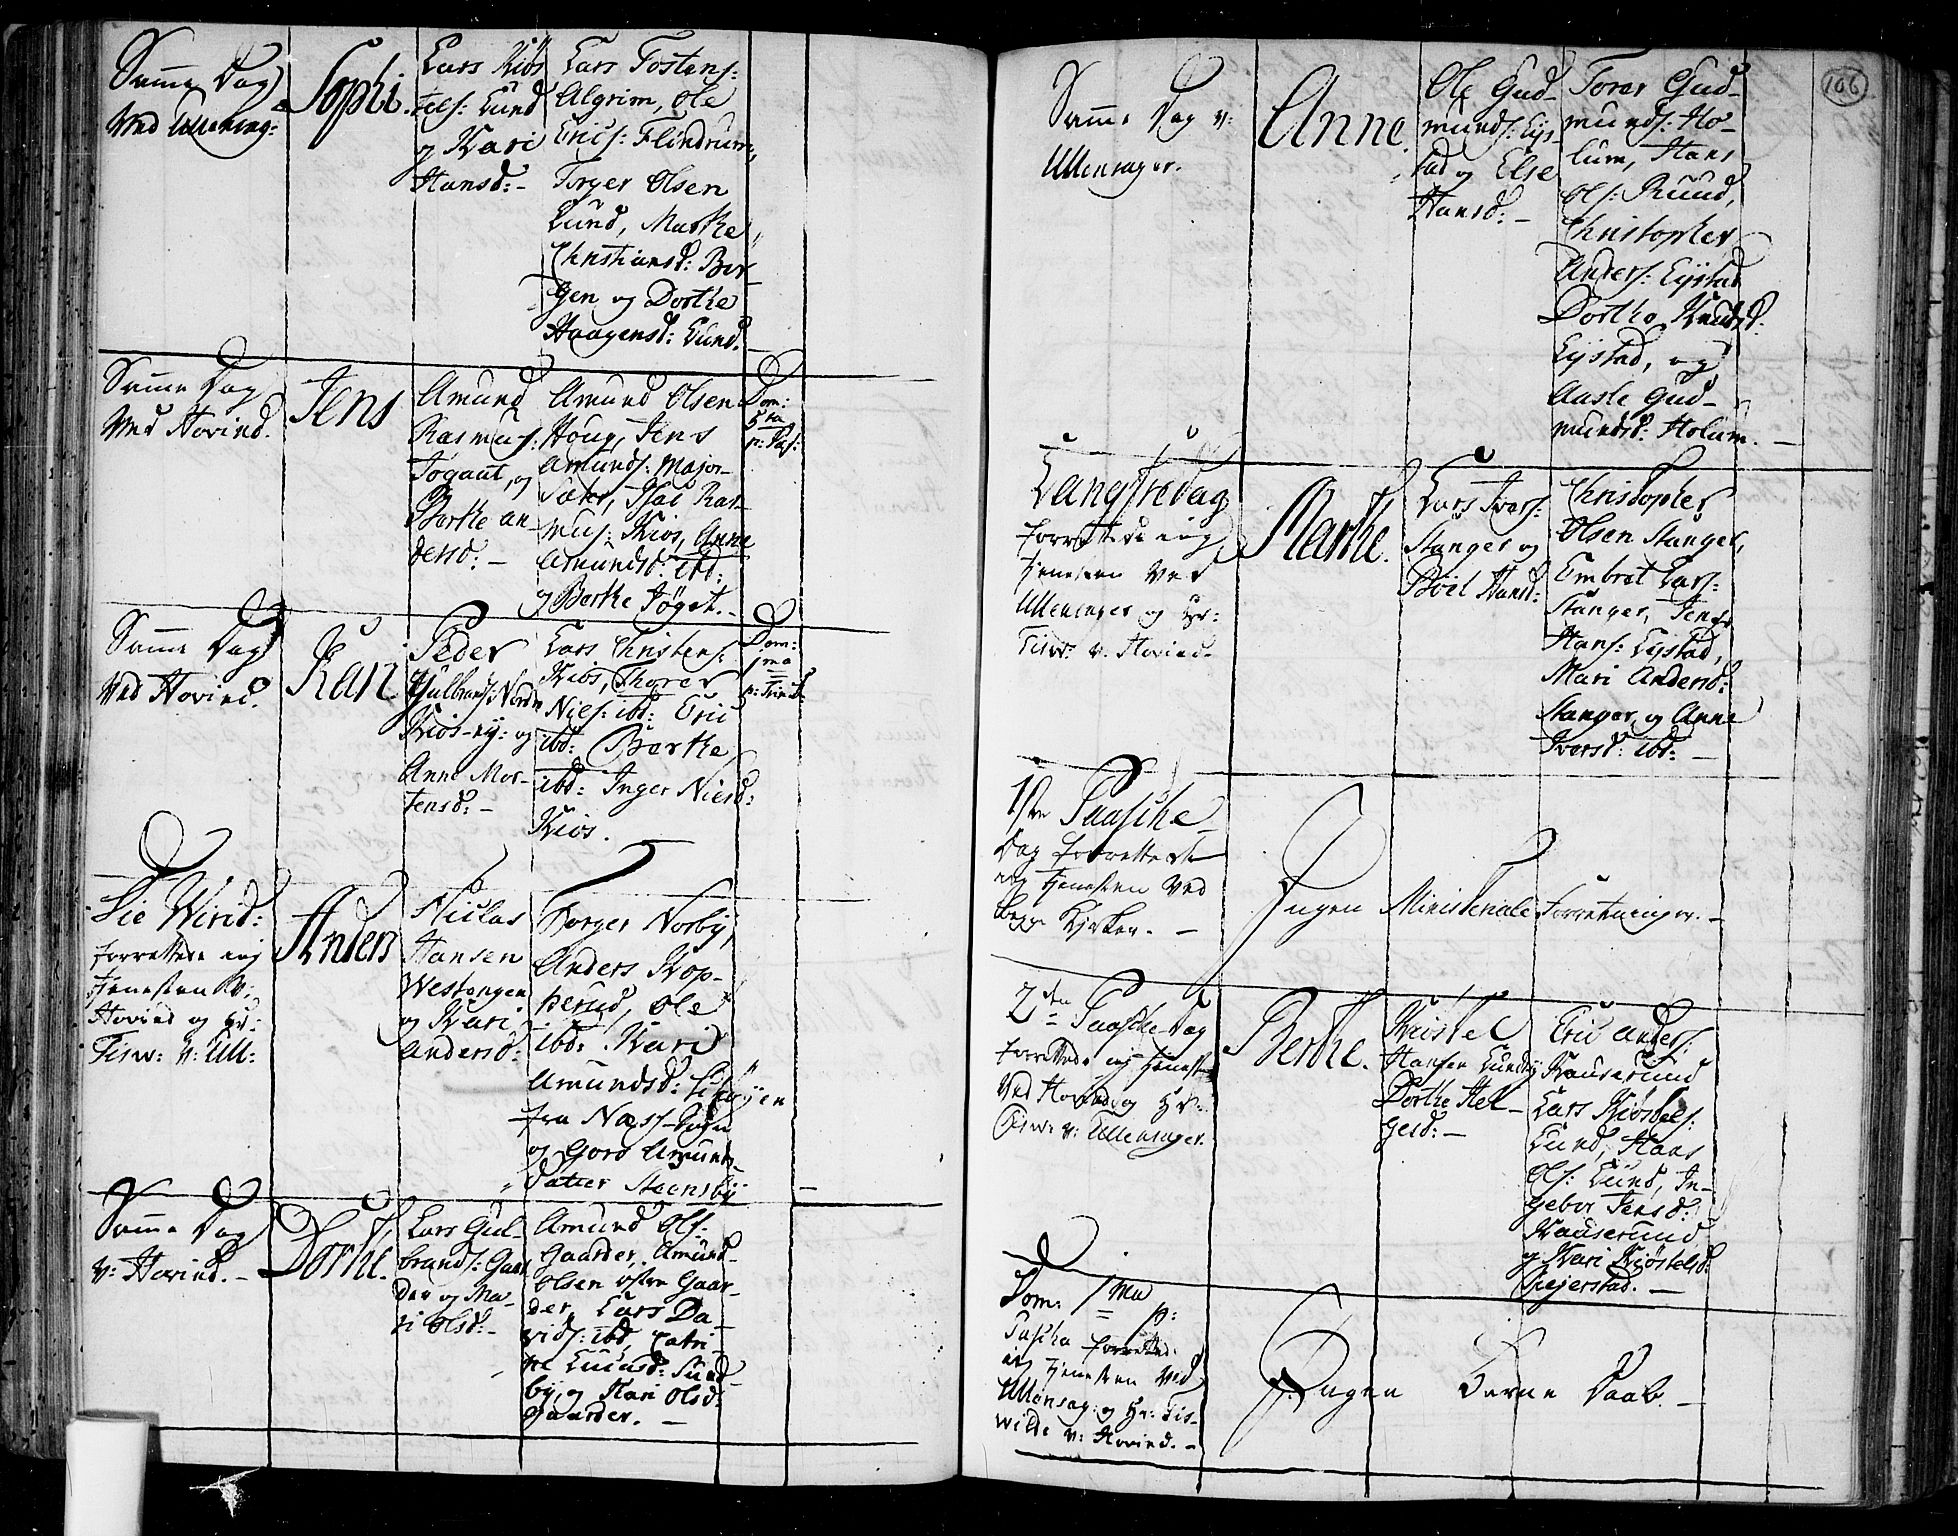 Samme Dag
ved Ullensag:
Sophi.
Lars Kiøs
tels: Lund
og Kari
Hansd: –
Lars Tostens:
Algrim, Ole
Erics: Flindrum,
Torger Olsen
Lund, Marthe
Christiansd: Ber-
gen og Dorthe
Haagensd: Lund.
Samme Dag
ved Hovind.
Jens
Amund
Rasmus:
Jøgaut, og
Berthe An-
dersd: –
Amund Olsen
Houg, Jens
Amunds: Major-
Sæter, Ras-
mus: Kios, Anne
Amundsd: ibd:
og Berthe Jøget. –
Dom:
5ta
p: Pas:
Samme Dag
ved Hovind.
Kari
Peder
Gulbrands: Nordre
Kios-ej: og
Anne Mor-
tensd: –
Lars Christens:
Kios, Thorer
Niels: ibd: Eric
ibd: Berthe
ibd: Inger Nielsd:
Kios.
Dom:
1ma
p: Trinit:
Die Virid:
forrettede jeg
tjenesten v:
Hovind og Hr:
Tisw: v: Ull:
Anders
Niclas
Hansen
Westengen
og Kari
Andersd:
Torger Norby,
Anders Kop-
perud, Ole
ibd: Kari
Amundsd:
fra Næss-
og Goro Amunds
Datter Steensby
Samme Dag
v: Hovind. –
Dorthe.
Lars Gul-
brands: Gaar
der og Ma-
ri Olsd: –
Amund Ols:
Gaarder, Amund
Olsen østre Gaar-
der, Lars Da-
vids: ibd, Catri-
ne Lucasd: Sund
by, og Kari Olsd:
Gaarder. –
106
Samme Dag v:
Ullensager.
Anne.
Ole Gud-
munds: Eys-
tad og Else
Hansd: –
Torer Gud-
munds: Ho-
lum, Hans
Ols: Ruud,
Christopher
Anders: Eystad
Dorthe Knudsd:
Eystad, og
Aasle Gud-
mundsd: Holum. –
Langfredag
forrettede jeg
tjenesten ved
Ullensager og Hr:
Tisw: v: Hovind. –
Marthe.
Lars Ivers:
Stanger og
Boel Hansd:
Christopher
Olsen Stanger,
Embret Lars:
Stanger, Jens
Hans: Eystad,
Mari Andersd:
Stanger og Anne
Iversd: ibd: –
1ste Paasche
Dag forrettede
jeg tjenesten ved
begge Kirker. –
Ingen Ministeriale Forretninger. –
2den Paasche Dag
forrettede jeg tjenesten
ved Hovind og Hr:
Tisw: v: Ullensager.
Berthe.
Christel
Hansen Lundby
Dorthe Hel-
gesd: –
Eric Anders:
Kauserund
Lars Kiøstels:
Lund, Hans
Ols: Lund, In-
gebor Jensd:
Kauserund
og Kari Kiøstelsd:
Gejerstad. –
Dom: 1ma p:
Pascha forrettede
jeg tjenesten ved
Ullensag: og Hr: Tis-
wilde v: Hovind. –
Ingen Børne Daab. –